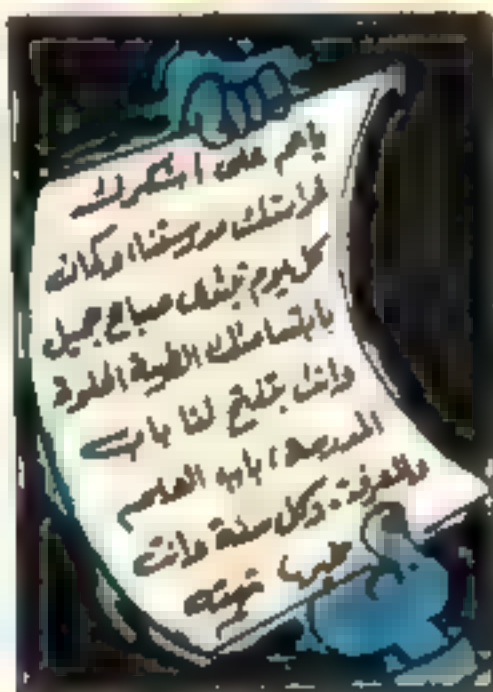 ياعم على اشكرك
حراستك مدرستنا، وكانه
كل يوم تبتدى صباح جميل
بابتسامتك الطيبة الحلوة
وانت بتفتح لنا باب
المدرسة، باب العلم
والمعرفة. وكل سنة وانت
طيب